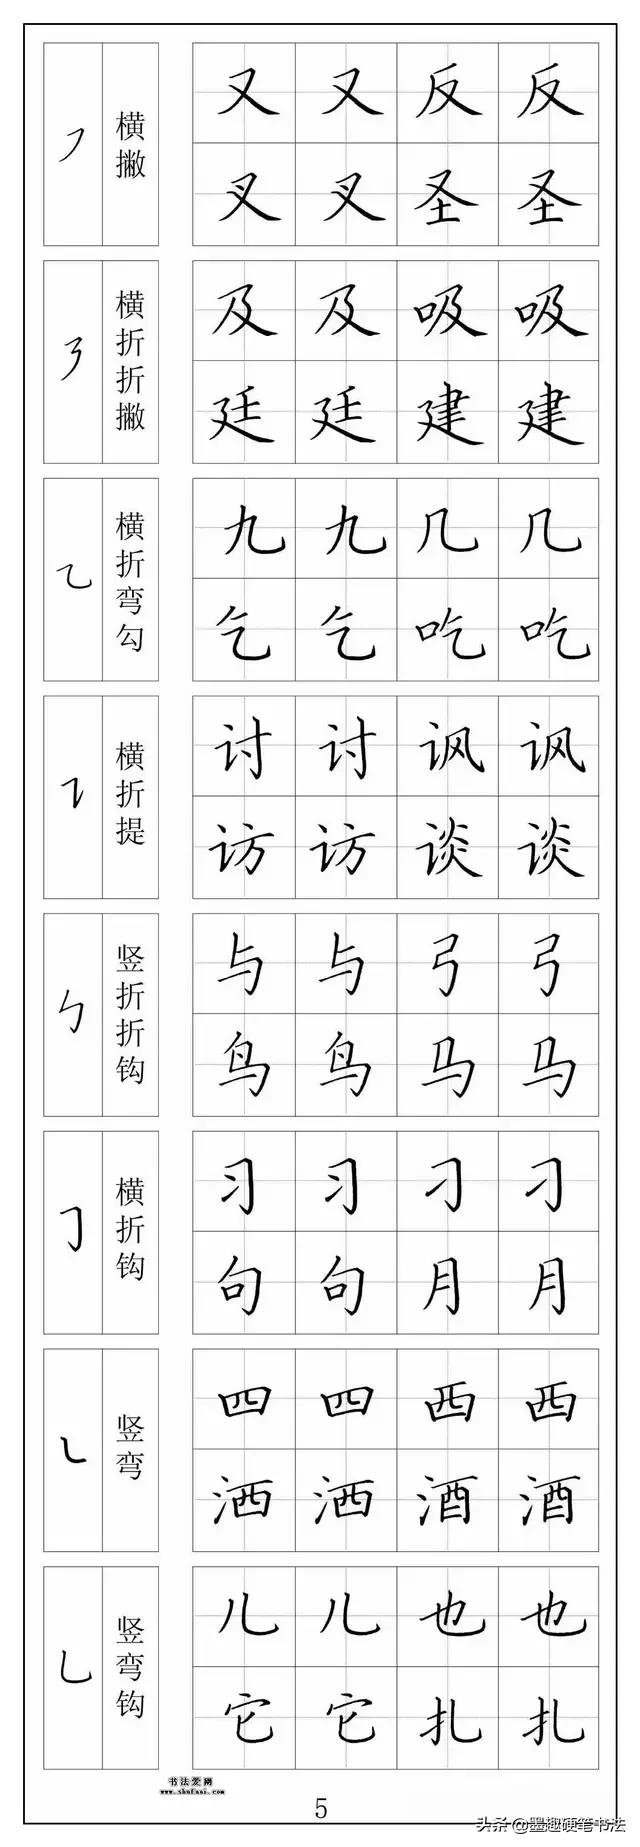 横撇
又又反反
叉叉圣圣
横折折撇
及及吸吸
廷廷建建
横折弯勾
九九几几
乞乞吃吃
横折提
讨讨讽讽
访访谈谈
竖折折钩
与与弓弓
鸟鸟马马
横折钩
习习刁刁
句句月月
竖弯
四四西西
洒洒酒酒
竖弯钩
儿儿也也
它它扎扎
书法爱刚
www.shufaai.com
5
头条@墨趣硬笔书法